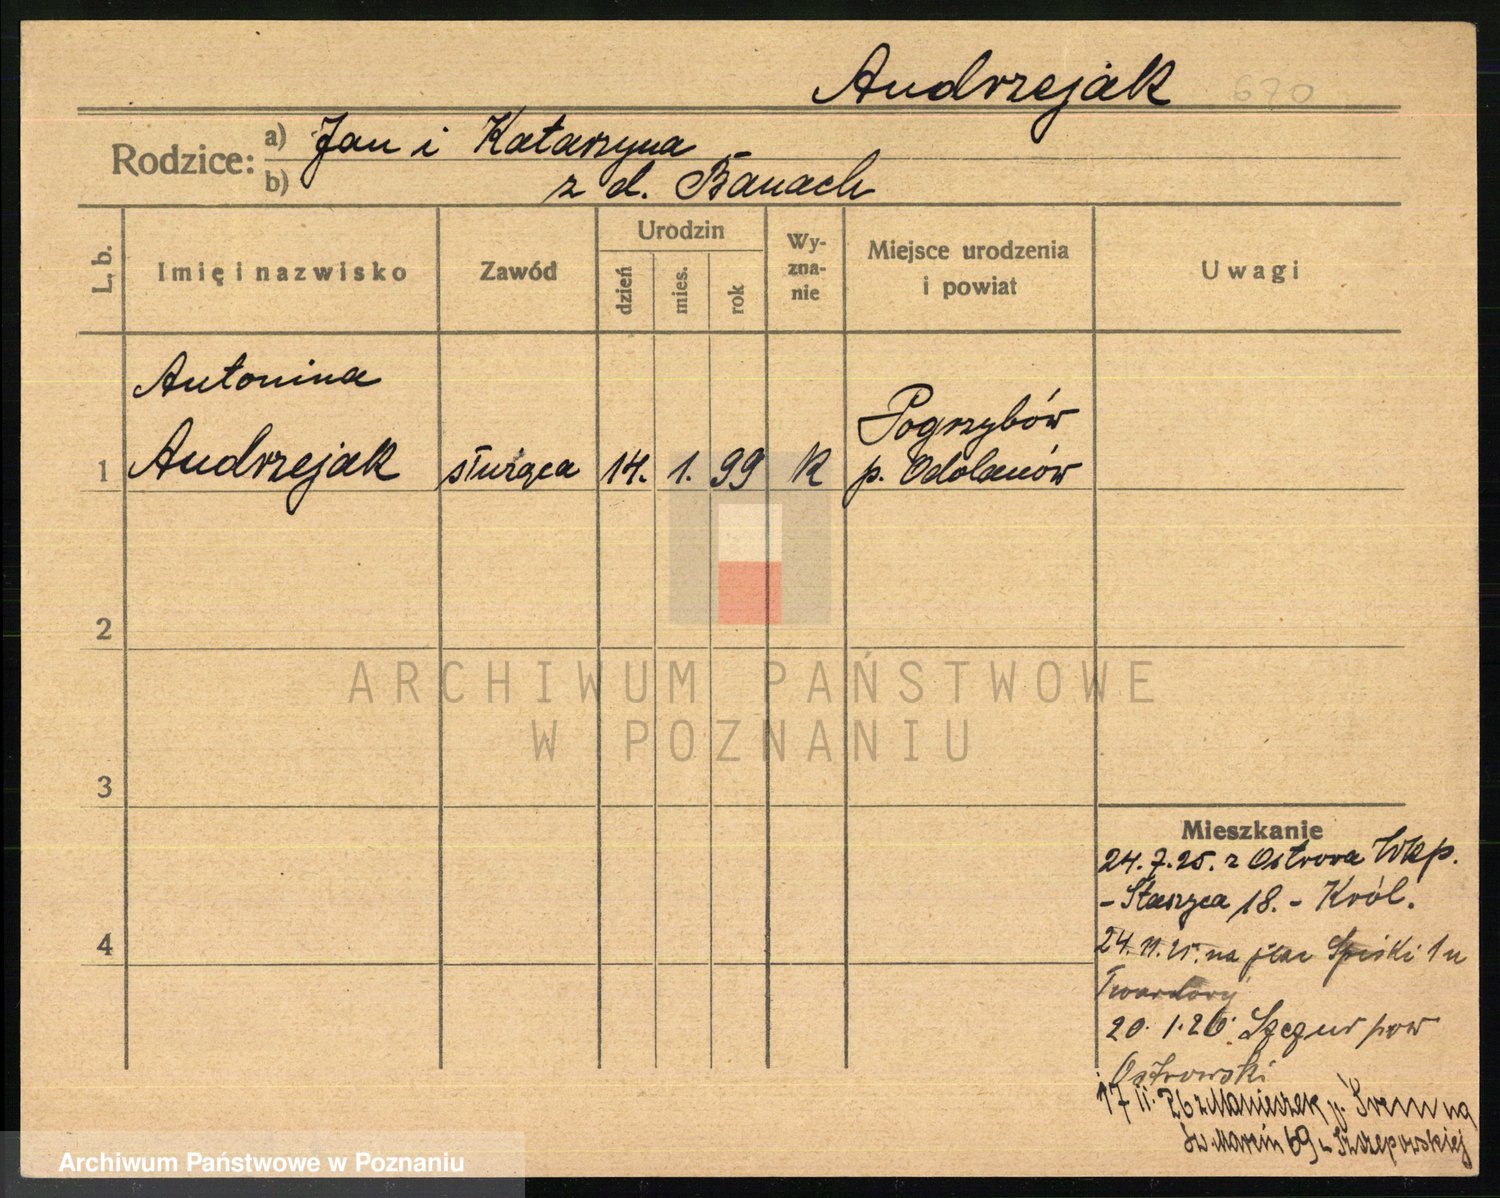 Andrzejak 670
Rodzice: a) Jan i Katarzyna
b) z d. Banach
L. b.
Imię i nazwisko
Zawód
Urodzin
dzień
mies.
rok
Wy-
zna-
nie
Miejsce urodzenia
i powiat
Uwagi
Antonina
Pogrzybów
1 Andrzejak służąca 14. 1. 99 k p. Odolanów
2
3
4
Mieszkanie
24.7.25. z Ostrova Wkp.
- Staszyca 18. - Król.
24.11.25. na plac Spiski 1 u
Twardowy
20.1.26. Szczur pow
Ostrowski
17 11. 26 z Manieczek p. Śrem na
Św. Marcin 69 - Szczepowskiej
ARCHIWUM PAŃSTWOWE
W POZNANIU
Archiwum Państwowe w Poznaniu